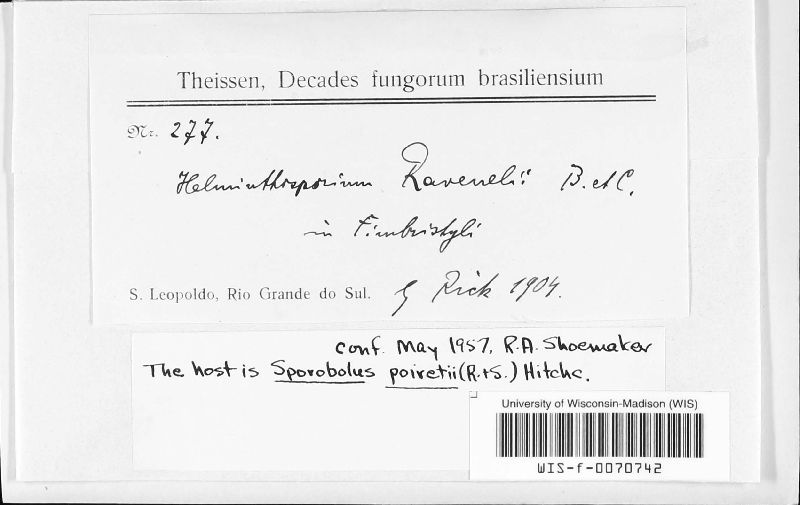 Theissen, Decades fungorum brasiliensium
Nr. 277.
Helminthosporium Ravenelii B. et C.
in Fimbristyli
S. Leopoldo, Rio Grande do Sul. Rick 1904.
conf. May 1957, R.A. Shoemaker
The host is Sporobolus poiretii (R.+S.) Hitchc.
University of Wisconsin-Madison (WIS)
WIS-f-0070742